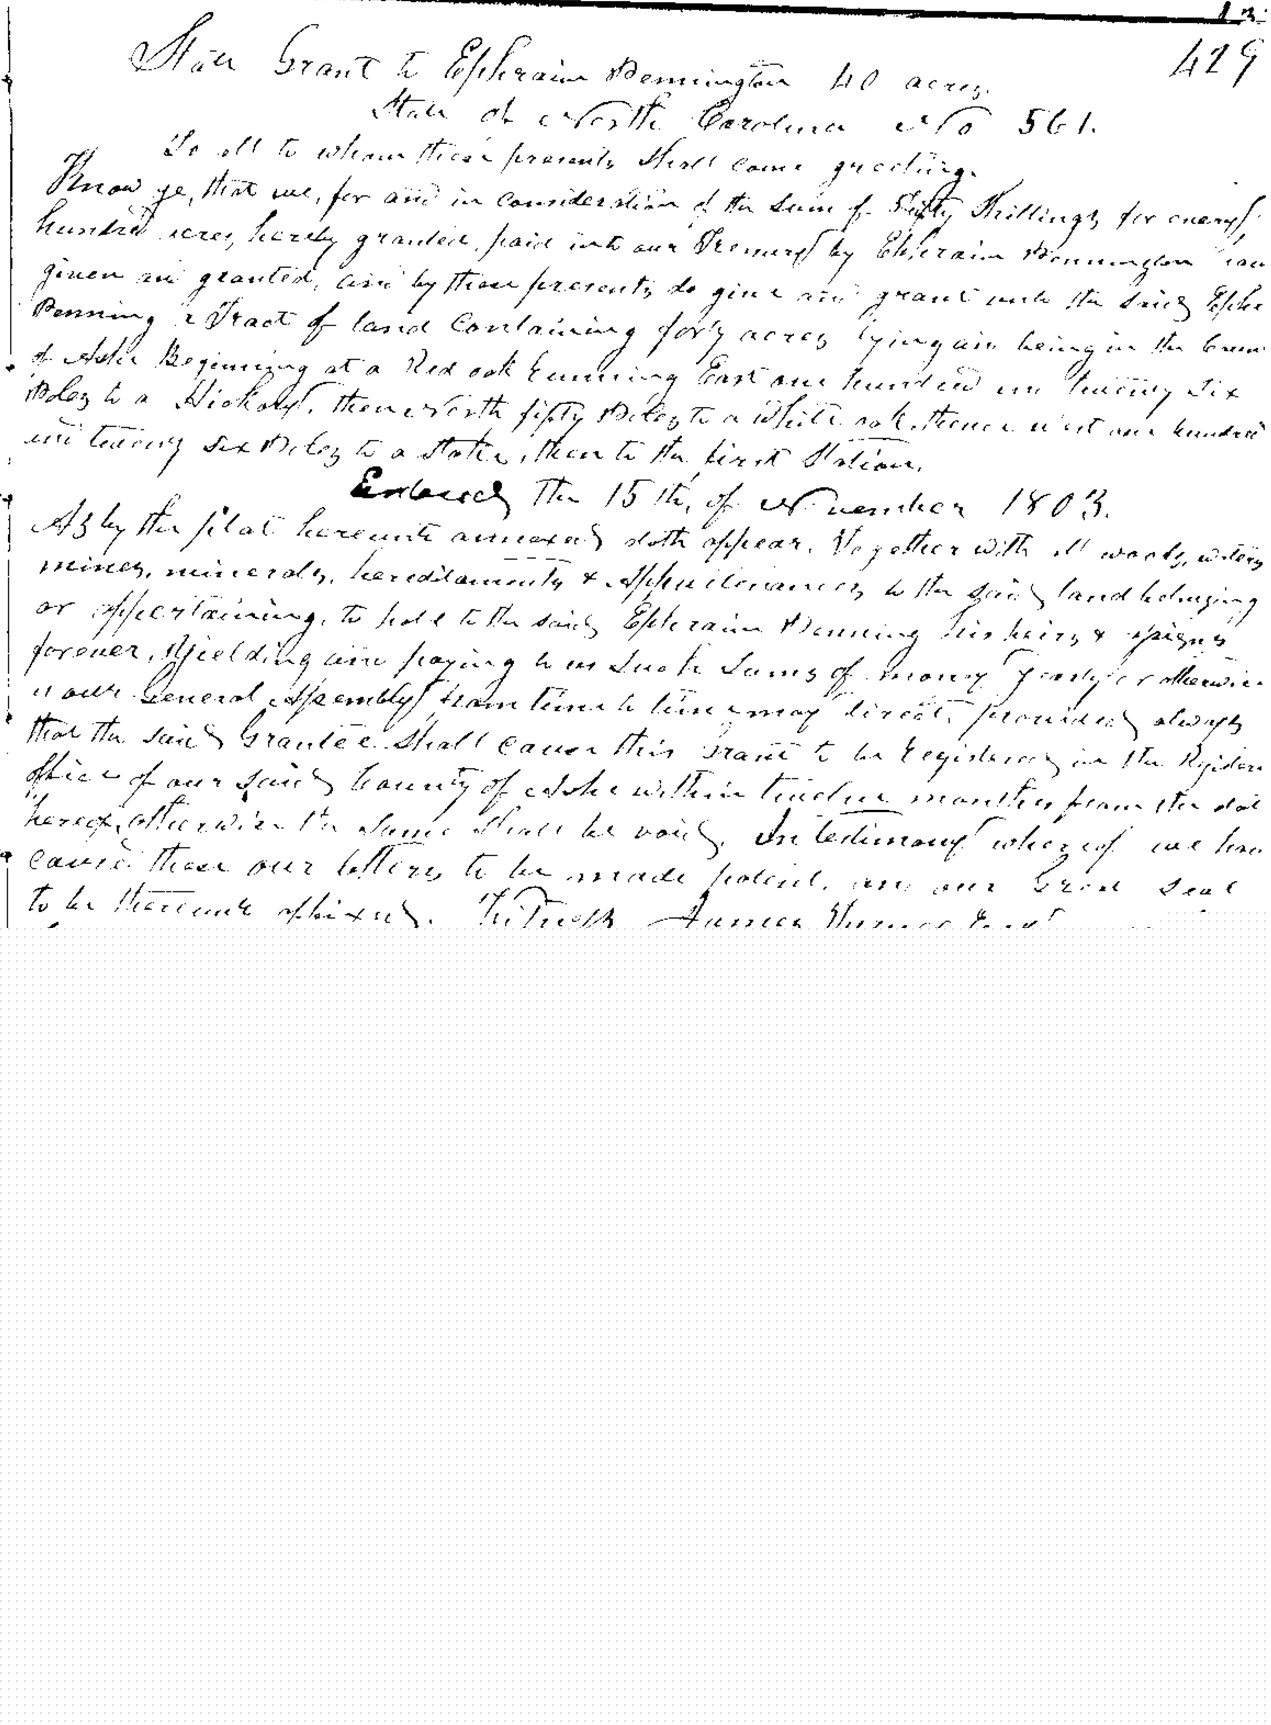 429
State Grant to Ephraim Pennington 40 acres.
State of North Carolina No 561.
To all to whom these presents Shall come greeting.
Know ye, that we, for and in consideration of the Sum of Fifty Shillings for every
hundred acres, hereby granted, paid into our Treasury by Ephraim Pennington have
given and granted, and by these presents do give and grant unto the said Ephr
Penning a Tract of land Containing forty acres lying and being in the Coun
of Ashe Beginning at a Red oak Running East one hundred and twenty Six
Poles to a Hickory, then North fifty Poles to a White oak, thence west one hundred
and twenty Six Poles to a Stake, then to the first Station.
Entered the 15th, of November 1803.
As by the plat hereunto annexed doth appear. Together with all woods, waters
mines, minerals, hereditaments & Appurtenances to the said land belonging
or appertaining, to hold to the said Ephraim Penning his heirs & assigns
forever, Yielding and paying to us Such Sums of money Yearly or otherwise
as our General Assembly from time to time may direct, provided always
that the said Grantee Shall cause this Grant to be Registered in the Registers
office of our said County of Ashe within twelve months from the date
hereof, otherwise the Same Shall be void. In testimony whereof we have
caused these our letters to be made patent, and our Great Seal
to be thereunto affixed. Witness James Turner